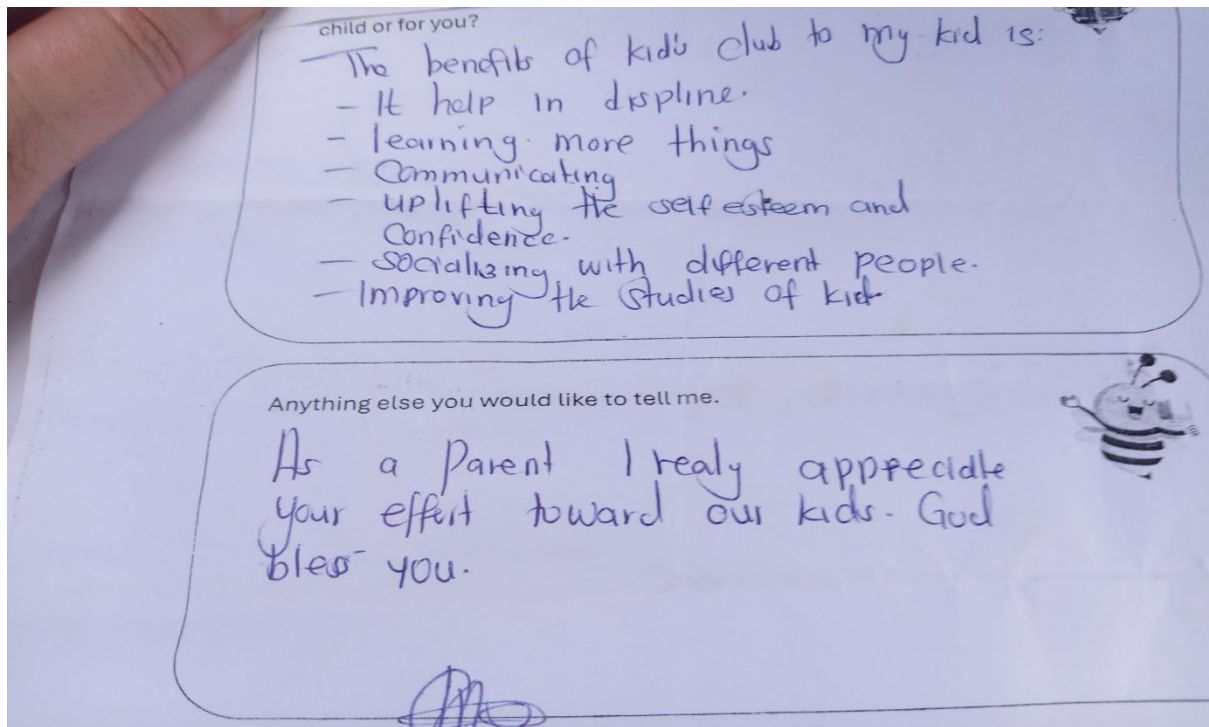 child or for you?
The benefits of kid's club to my kid is:
- It help in displine.
- learning more things
- Communicating
- uplifting the self esteem and
Confidence.
- socializing with different people.
- Improving the studies of kid
Anything else you would like to tell me.
As a Parent I realy appreciate
your effort toward our kids. God
bless you.